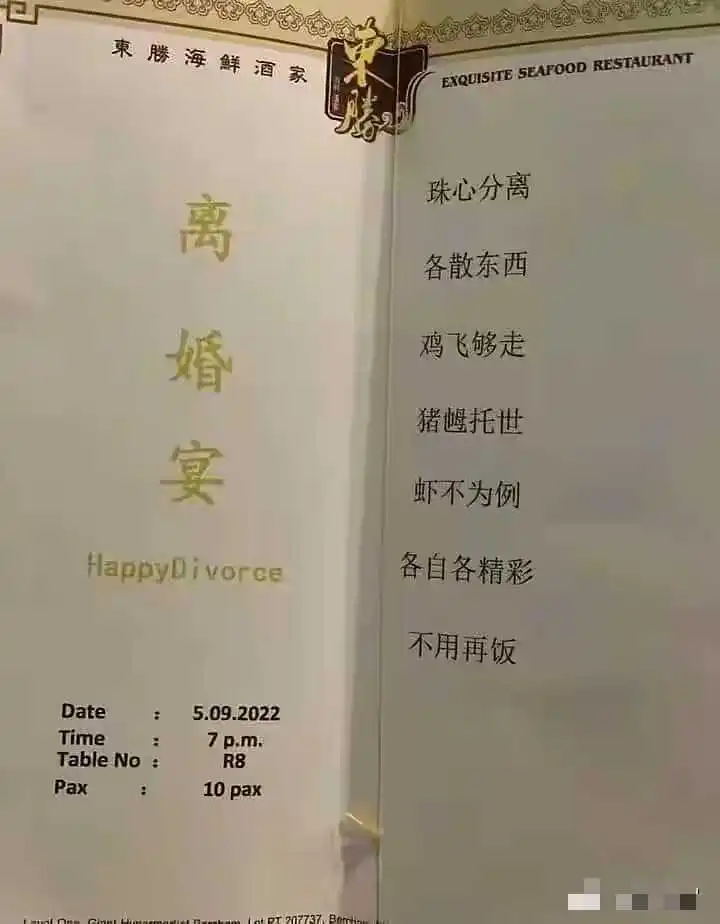 東勝海鮮酒家
東勝
EXQUISITE SEAFOOD RESTAURANT
离
婚
宴
HappyDivorce
Date : 5.09.2022
Time : 7 p.m.
Table No : R8
Pax : 10 pax
珠心分离
各散东西
鸡飞够走
猪乸托世
虾不为例
各自各精彩
不用再饭